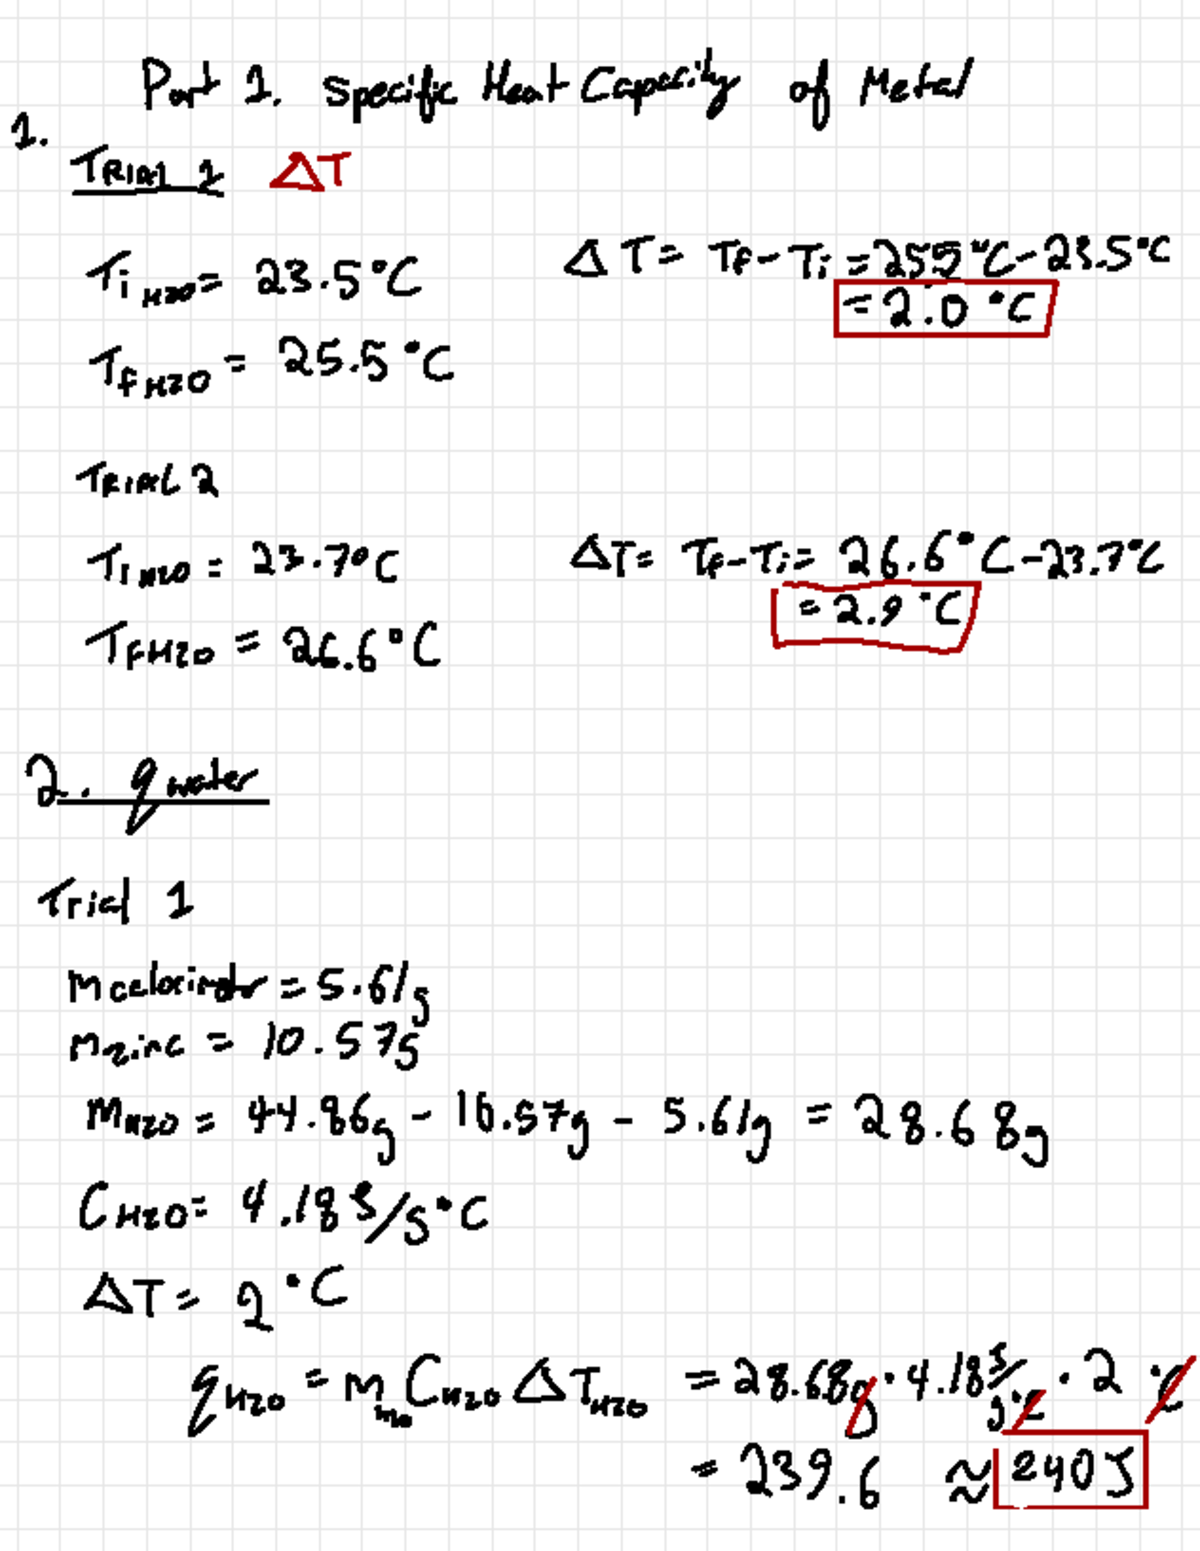 Part 1. Specific Heat Capacity of Metal
1.
TRIAL 1 ΔT
Ti H2O = 23.5°C
ΔT = Tf - Ti = 25.5°C - 23.5°C
= 2.0 °C
Tf H2O = 25.5°C
TRIAL 2
Ti H2O = 23.7°C
ΔT = Tf - Ti = 26.6°C - 23.7°C
= 2.9 °C
Tf H2O = 26.6°C
2. q water
Trial 1
m calorimeter = 5.61g
m zinc = 10.57g
m H2O = 44.86g - 10.57g - 5.61g = 28.68g
C H2O = 4.18 J/g°C
ΔT = 2 °C
q H2O = m H2O C H2O ΔT H2O = 28.68g · 4.18 J/g°C · 2 °C
= 239.6 ≈ 240 J